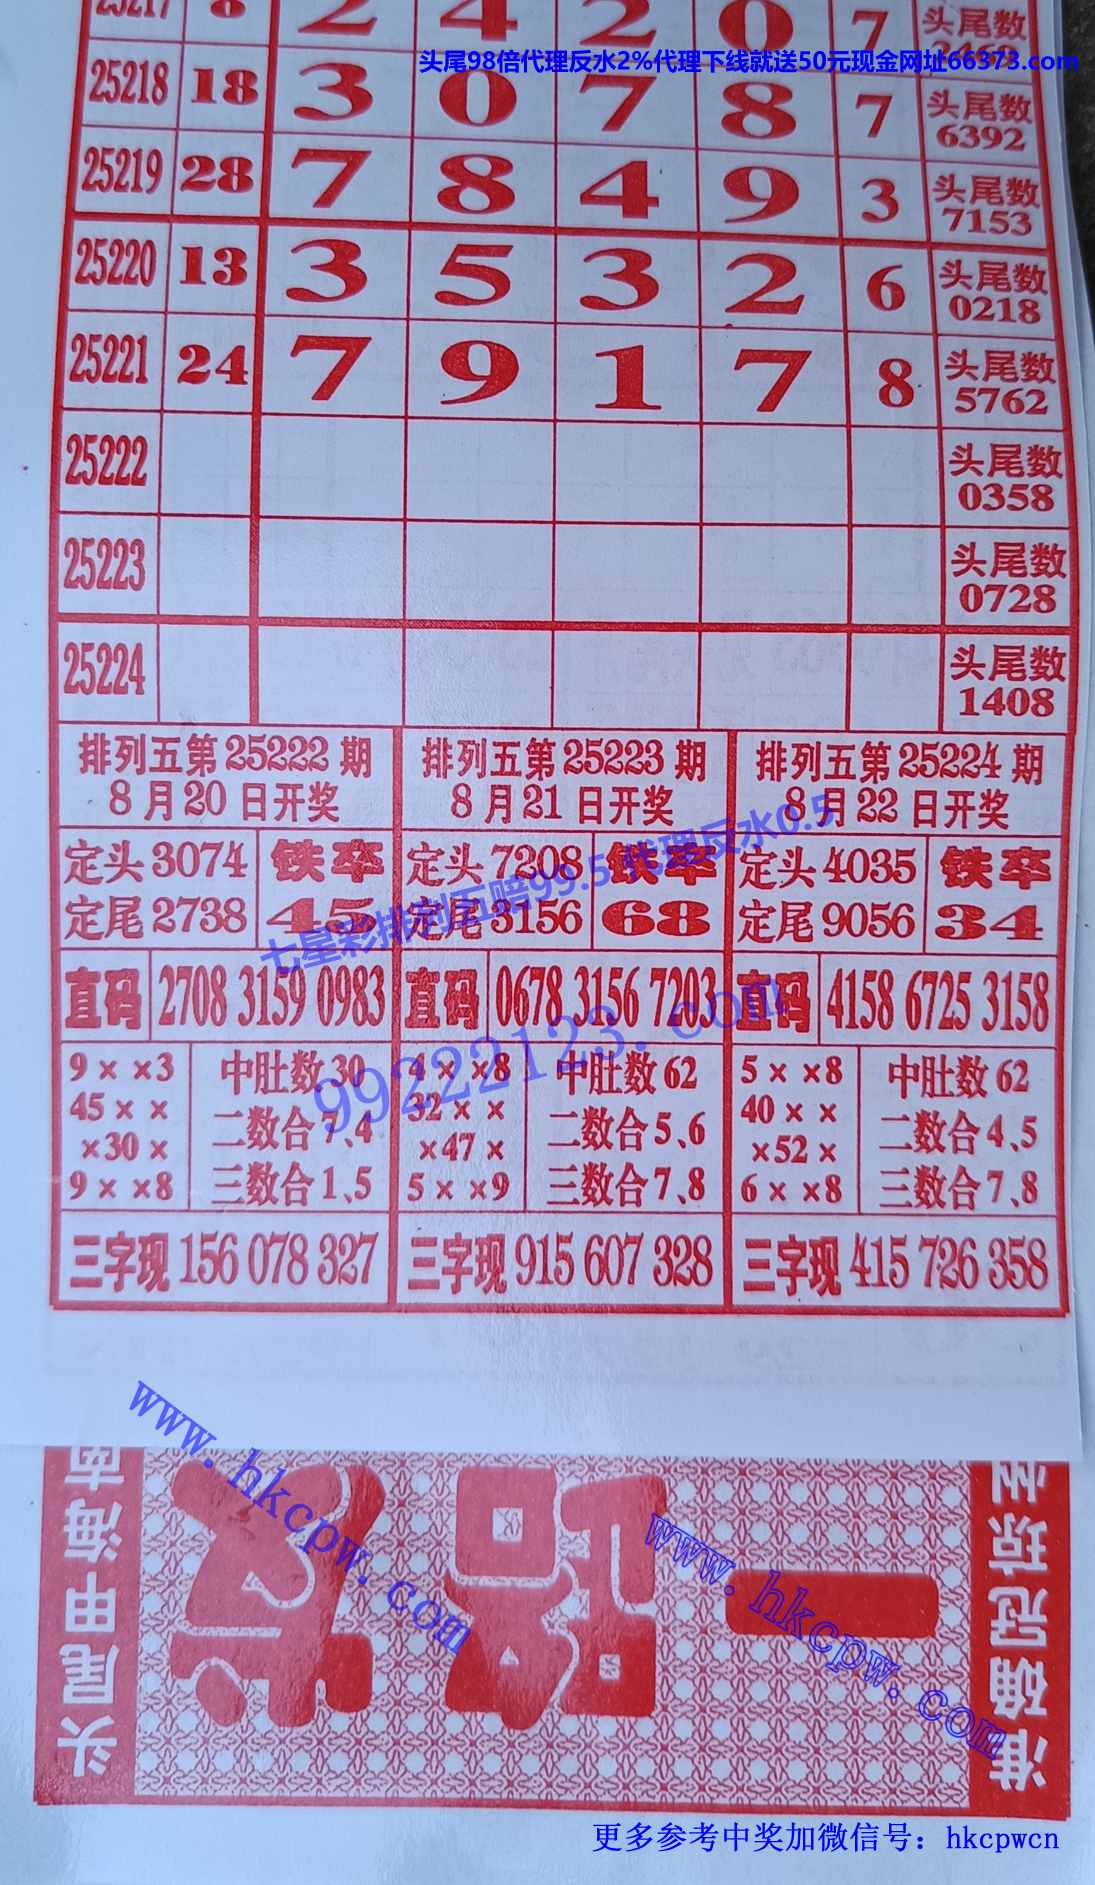 25217 8 2 4 2 0 7 头尾数
头尾98倍代理反水2%代理下线就送50元现金网址66373.com
25218 18 3 0 7 8 7 头尾数 6392
25219 28 7 8 4 9 3 头尾数 7153
25220 13 3 5 3 2 6 头尾数 0218
25221 24 7 9 1 7 8 头尾数 5762
25222 头尾数 0358
25223 头尾数 0728
25224 头尾数 1408
排列五第25222期 排列五第25223期 排列五第25224期
8月20日开奖 8月21日开奖 8月22日开奖
定头3074 铁卒 定头7208 铁卒 定头4035 铁卒
定尾2738 45 定尾3156 68 定尾9056 34
七星彩排列五赔99.5代理反水0.5
直码 2708 3159 0983 直码 0678 3156 7203 直码 4158 6725 3158
99222123.com
9××3 中肚数30 4××8 中肚数62 5××8 中肚数62
45×× 二数合7、4 32×× 二数合5、6 40×× 二数合4、5
×30× ×47× ×52×
9××8 三数合1、5 5××9 三数合7、8 6××8 三数合7、8
三字现 156 078 327 三字现 915 607 328 三字现 415 726 358
www.hkcpw.com
www.hkcpw.com
准确冠琼州
一路发
头尾甲海南
更多参考中奖加微信号：hkcpwcn